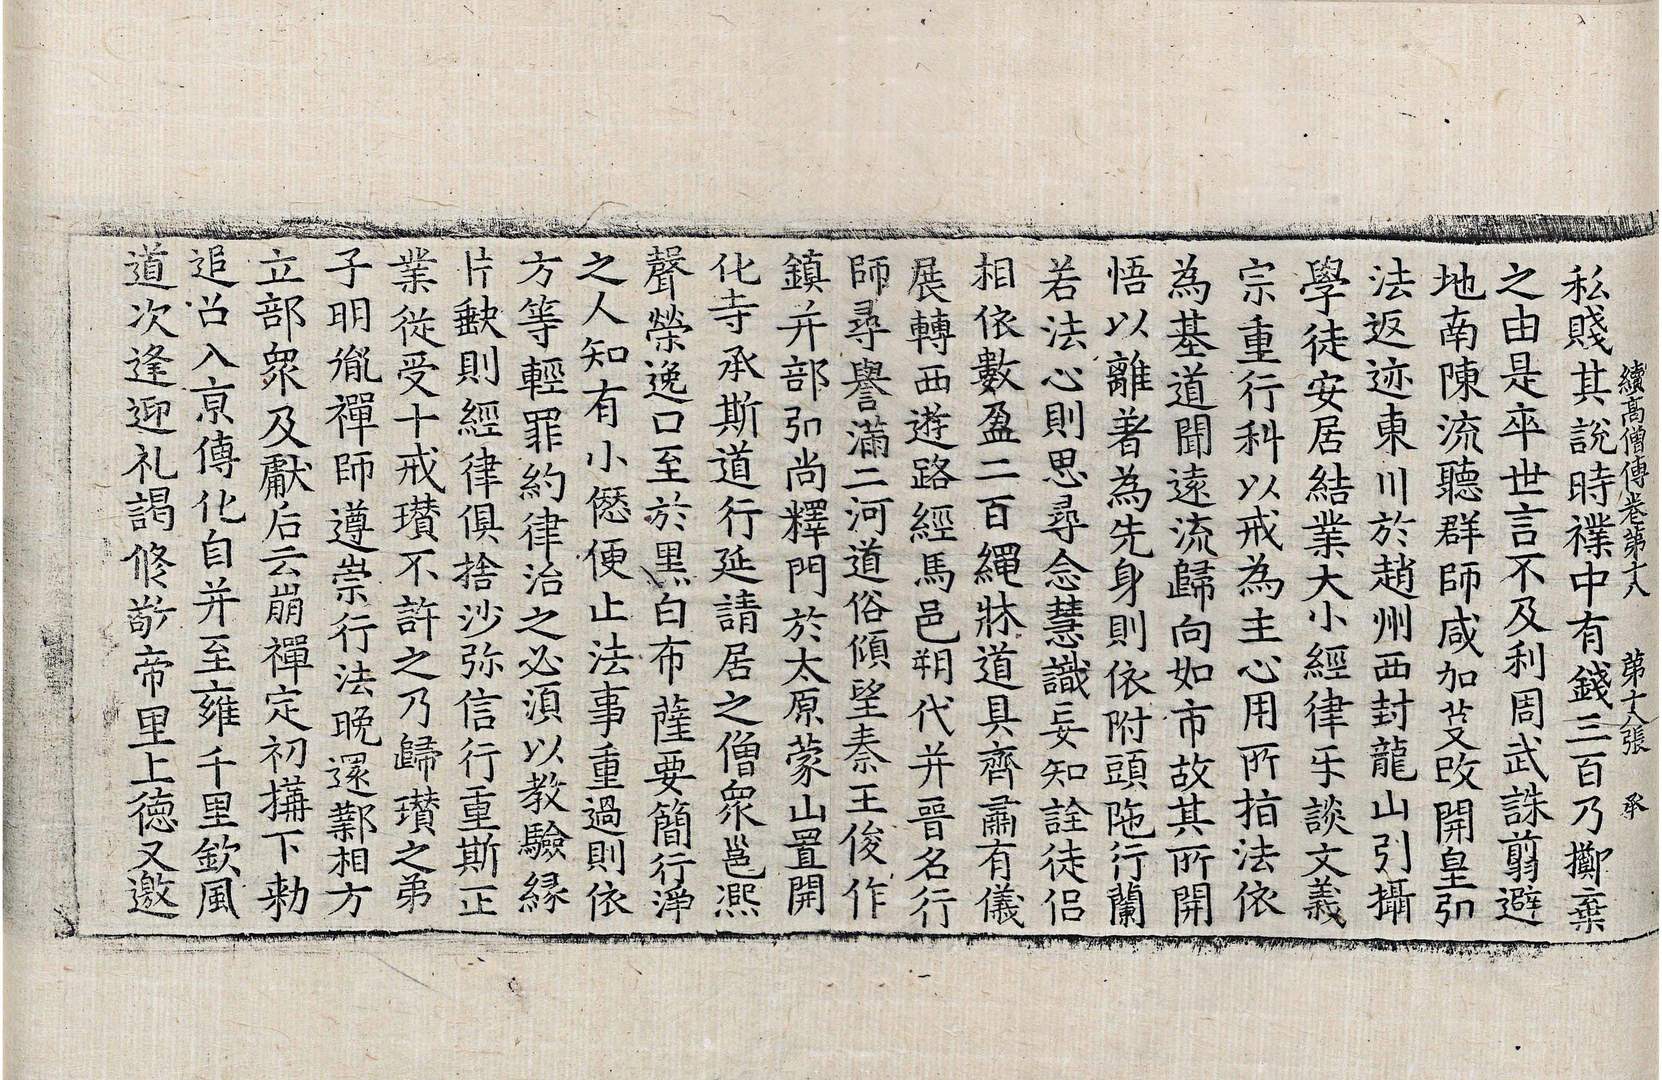 續高僧傳卷第十八　第十八張　承
私賤其說時襆中有錢三百乃擲棄
之由是卒世言不及利周武誅翦避
地南陳流聽群師咸加芟改開皇弘
法返迹東川於趙州西封龍山引攝
學徒安居結業大小經律㸦談文義
宗重行科以戒為主心用所拍法依
為基道聞遠流歸向如市故其所開
悟以離著為先身則依附頭陁行蘭
若法心則思尋念慧識妄知詮徒侶
相依數盈二百繩牀道具齊肅有儀
展轉西遊路經馬邑朔代并晉名行
師尋譽滿二河道俗傾望秦王俊作
鎮并部弘尚釋門於太原蒙山置開
化寺承斯道行延請居之僧眾邕熈
聲榮逸口至於黑白布薩要簡行淨
之人知有小㥻便止法事重過則依
方等輕罪約律治之必須以教驗緣
片缺則經律俱捨沙弥信行重斯正
業從受十戒瓚不許之乃歸瓚之弟
子明胤禪師遵崇行法晚還鄴相方
立部眾及獻后云崩禪定初搆下勑
追召入京傳化自并至雍千里欽風
道次逢迎礼謁修敬帝里上德又邀